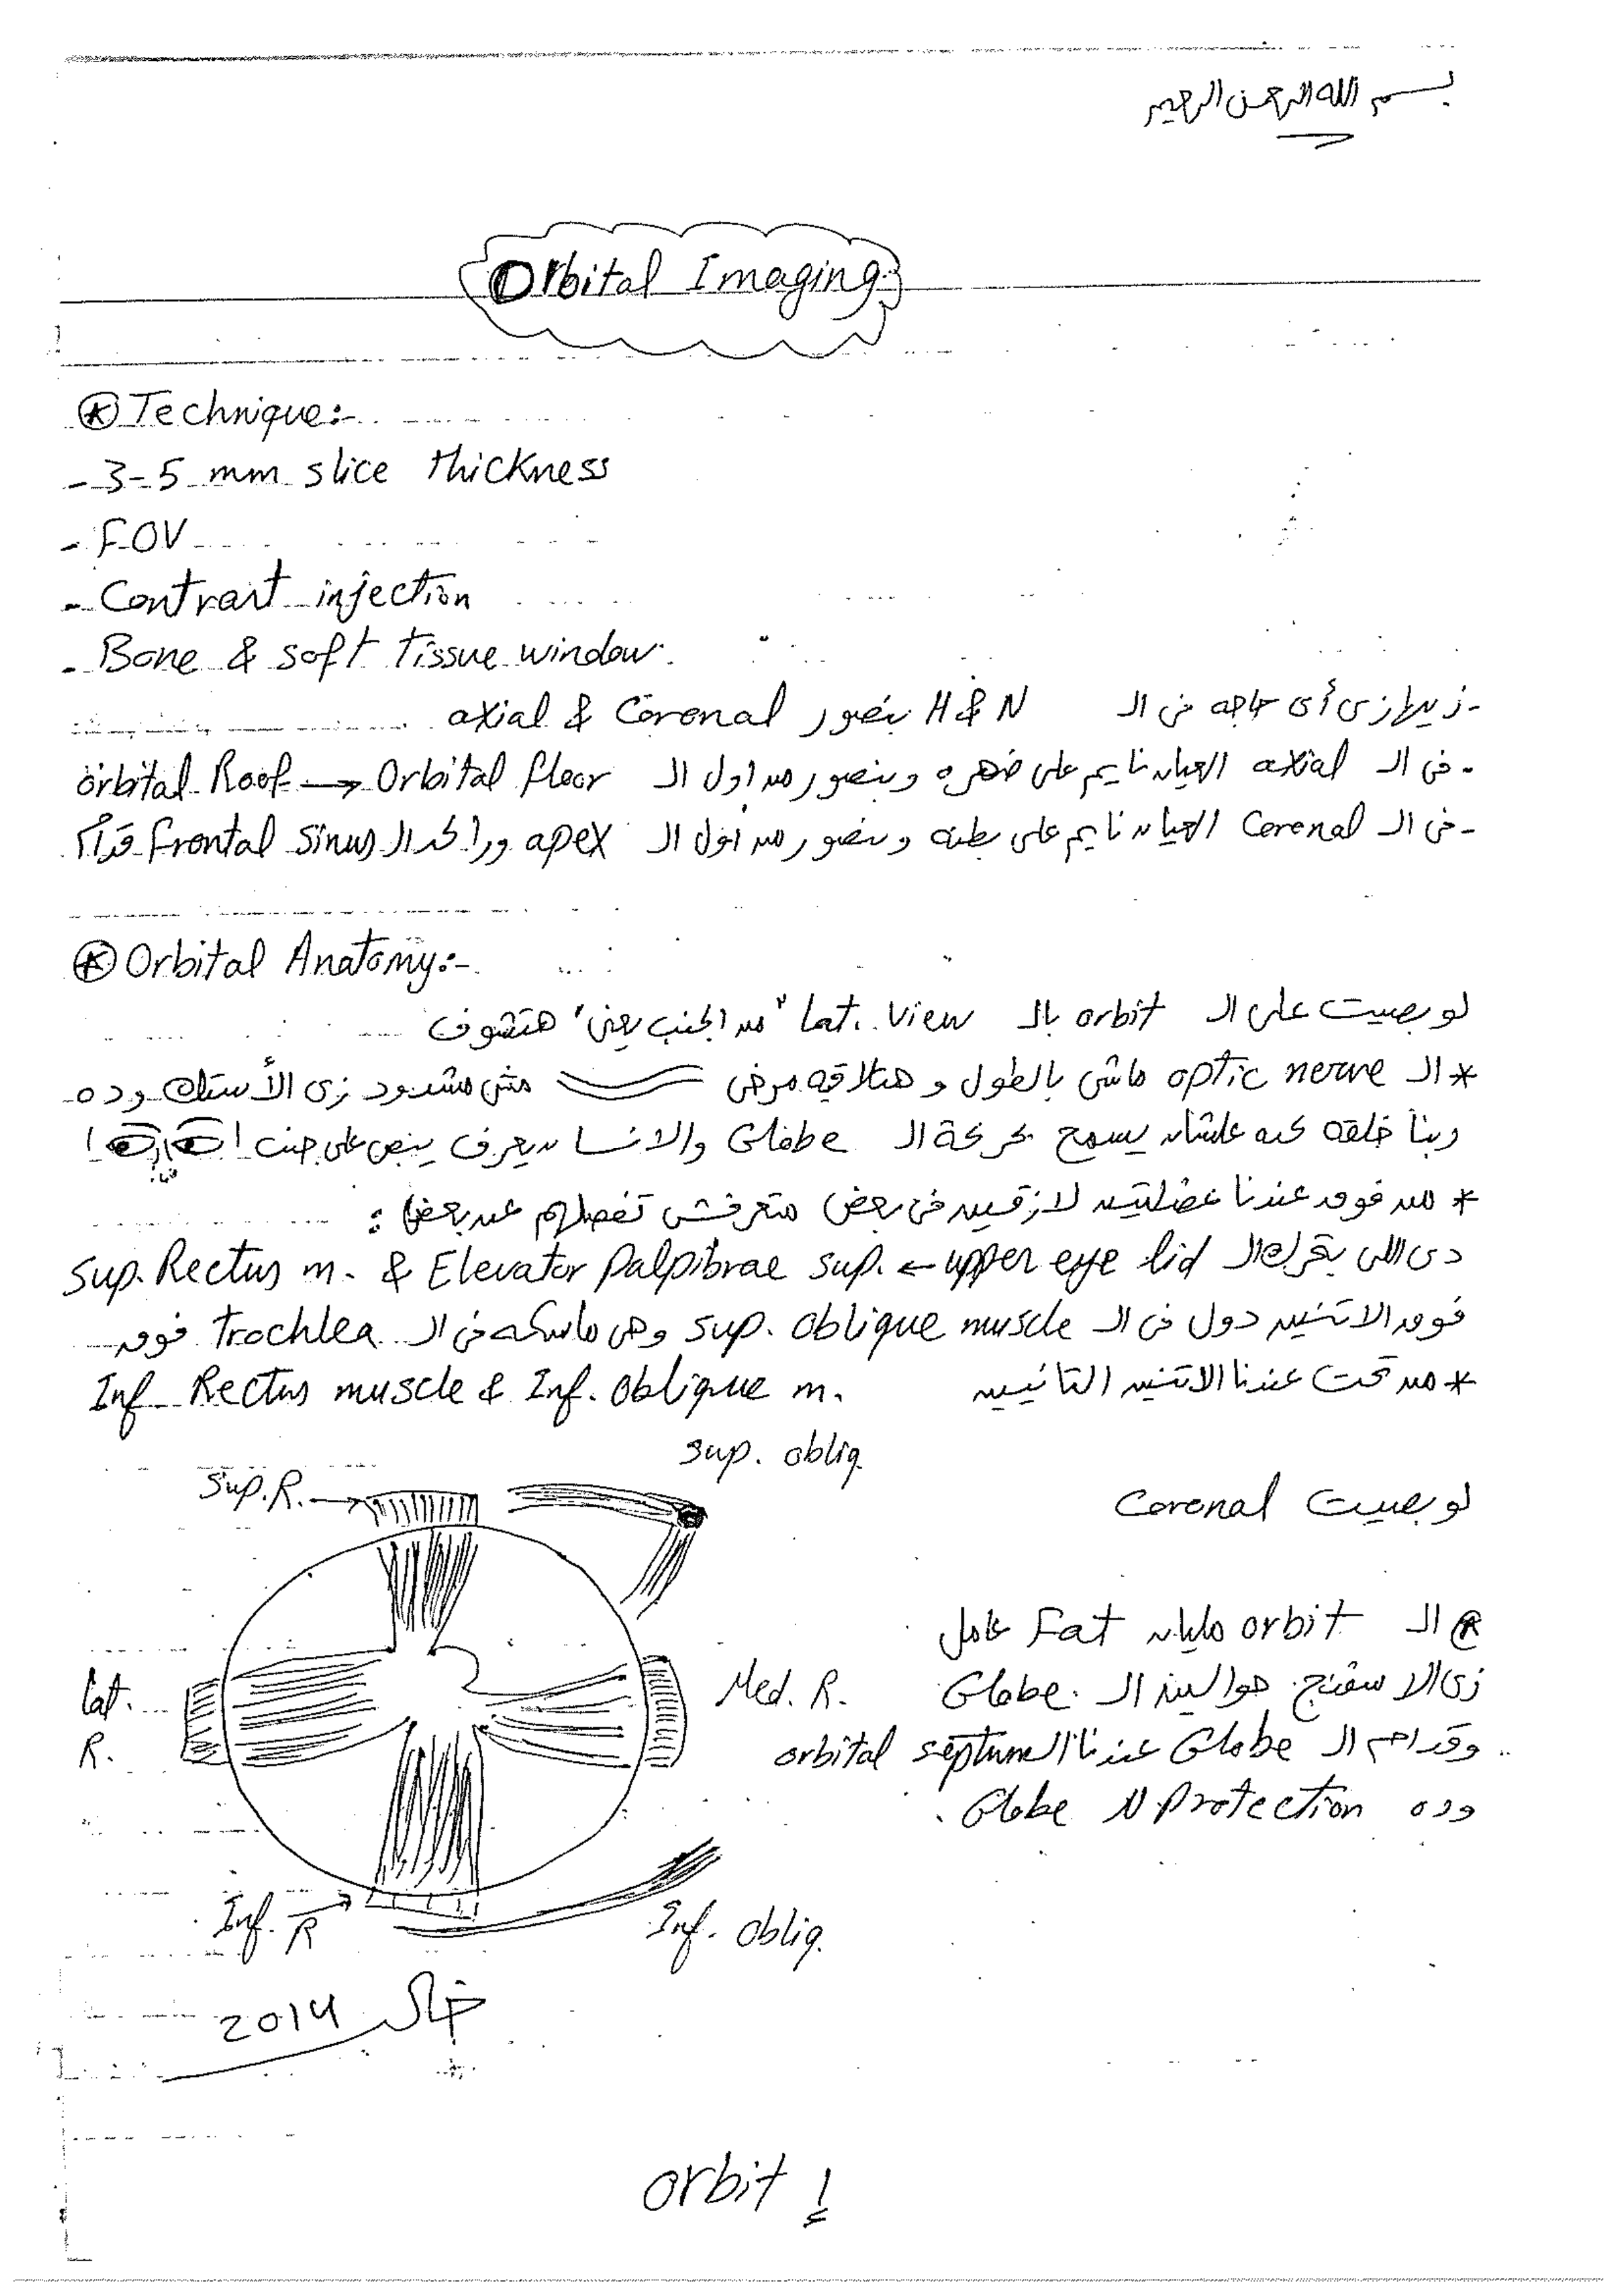 بسم الله الرحمن الرحيم
Orbital Imaging
* Technique:-
- 3-5 mm slice thickness
- FOV
- Contrart injection
- Bone & soft tissue window.
- زيها زى أى حاجه فى الـ H & N بنصور axial & Coronal
- فى الـ axial العيان نايم على ضهره وبنصور من اول الـ orbital Roof → Orbital floor
- فى الـ Coronal العيان نايم على بطنه وبنصور من اول الـ apex ورا لحد الـ frontal sinus قدام
* Orbital Anatomy:-
لو بصيت على الـ orbit بالـ lat. view "من الجنب يعنى" هتشوف
* الـ optic nerve ماشى بالطول وهتلاقيه مرخى مش مشدود زى الأستك وده
ربنا خلقه كده علشان يسمح بحركة الـ Globe والانسان يعرف يبص على جنب !
* من فوق عندنا عضلتين لازقين فى بعض متعرفش تفصلهم عن بعض :
Sup. Rectus m. & Elevator Palpibrae sup. ← upper eye lid دى اللى بتحرك الـ
فوق الاتنين دول فى الـ sup. oblique muscle وهى ماسكه فى الـ Trochlea فوق
* من تحت عندنا الاتنين التانيين Inf Rectus muscle & Inf. oblique m.
sup. obliq.
Sup. R.
لو بصيت Coronal
* الـ orbit مليان Fat عامل
lat. R.
Med. R.
زى الاسفنج حوالين الـ Globe.
وقدام الـ Globe عندنا الـ orbital septum
وده Protection للـ Globe.
Inf. R
Inf. obliq.
2014
orbit